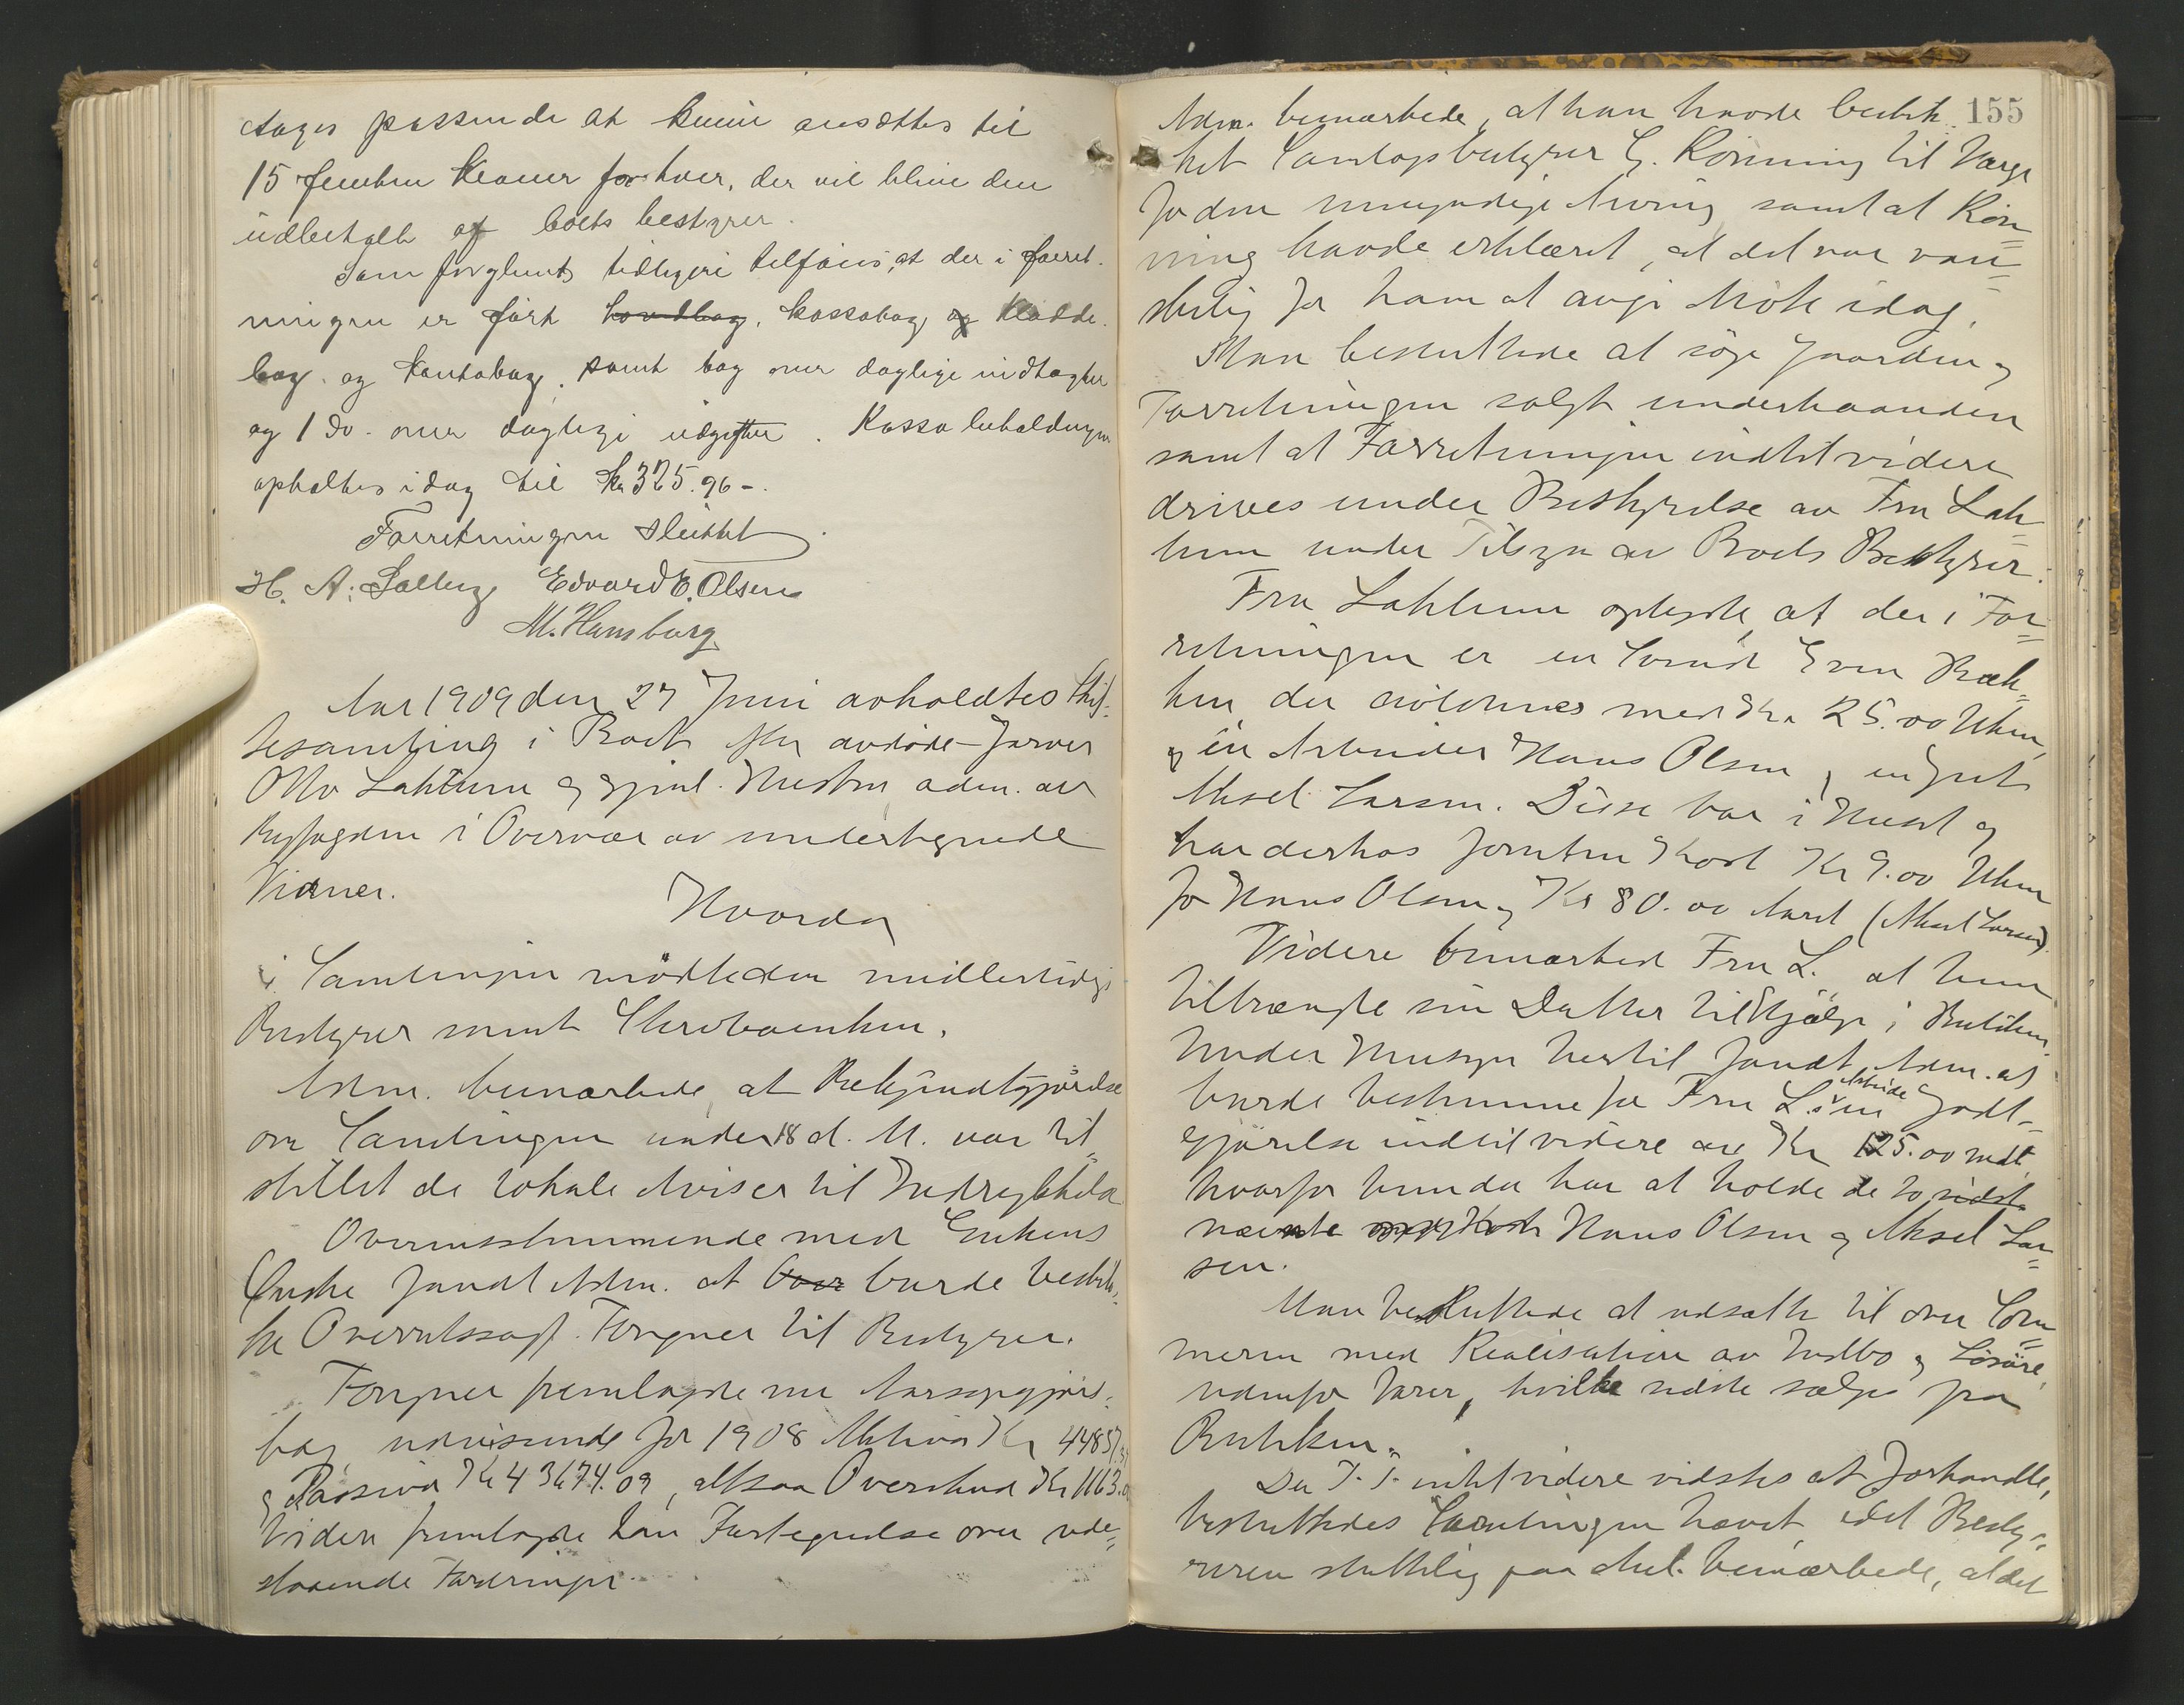 tages passende at kunne ansættes til
15 femten Kroner for hver, der vil blive dem
udbetalt af boets bestyrer.
Som forglemt tidligere tilføies, at der i forret-
ningen er ført hovedbog, kassabog og Kladde-
bog og Kontobog, samt bog over daglige indtægter
og 1 do. over daglige udgifter. Kassabeholdningen
optaltes idag til Kr 325.96 -.
Forretningen sluttet
H. A. Edvard E. Olsen
M. Hamborg
Aar 1909 den 27 Juni avholdtes Skif-
tesamling i Boet efter avdøde Farver
Otto Lahlum og gjenl. Hustru adm. av
i Overvær av undertegnede
Vidner.
Hvorda
i Samlingen mødte den midlertidige
Bestyrer samt Skreboenken.
Adm. bemærkede, at Bekjendtgjørelse
om Samlingen under 18 d. M. var til-
stillet de lokale Aviser til Indrykkelse
Overensstemmende med Enkens
Ønske fandt Adm. at Boer burde beskik-
ke Overretssagf. Forgner til Bestyrer.
Forgner fremlagde nu Aarsopgjørs-
bog, udvisende for 1908 Aktiva Kr 44837
og Passiva Kr 43674.09, altsaa Overskud Kr 1163.
Videre fremlagde han Fortegnelse over ude-
staaende Fordringer
155
Adm. bemærkede, at han havde beskik-
ket Landopsbestyrer G. Rønning til Værge
for den umyndige Arving samt at Røn-
ning havde erklæret, at det var van-
skelig for ham at avgi Møte idag.
Man besluttede at søge Gaarden og
Forretningen solgt underhaanden
samt at Forretningen indtil videre
drives under Bestyrelse av Fru Lah-
lum under Tilsyn av Boets Bestyrer.
Fru Lahlum oplyste, at der i For-
retningen er en Svend Even Bæk-
ken, der avlønnes med Kr. 25.00 Uken,
og en Arbeider Hans Olsen og en Gut
Aksel Larsen. Disse bor i Huset og
har derhos foruten Kost Kr 9.00 Uken
for Hans Olsen og Kr 80.00 Aaret (Aksel Larsen).
Videre bemærked Fru L., at hun
tiltrængte sin Datter til Hjælp i Butiken.
Under Hensyn hertil fandt Adm. at
burde bestemme for Fru L.s Arbeide en Godt-
gjørelse indtil videre av Kr 125.00 mdl.
hvorfor hun da har at holde de to sidst
nævnte med Kost Hans Olsen og Aksel Lar-
sen.
Man besluttede at udsætte til over Som-
meren med Realisation av Indbo og Løsøre,
udenfor Varer, hvilke sidste sælges fra
Butiken.
Da I. I. indtil videre vidstes at forhandle,
besluttedes Samlingen hævet idet Besty-
reren sluttelig paa Anl. bemærkede, at det